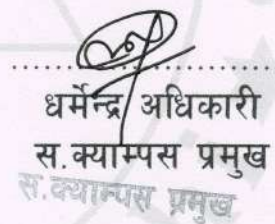 ....................
धर्मेन्द्र अधिकारी
स.क्याम्पस प्रमुख
स.क्याम्पस प्रमुख